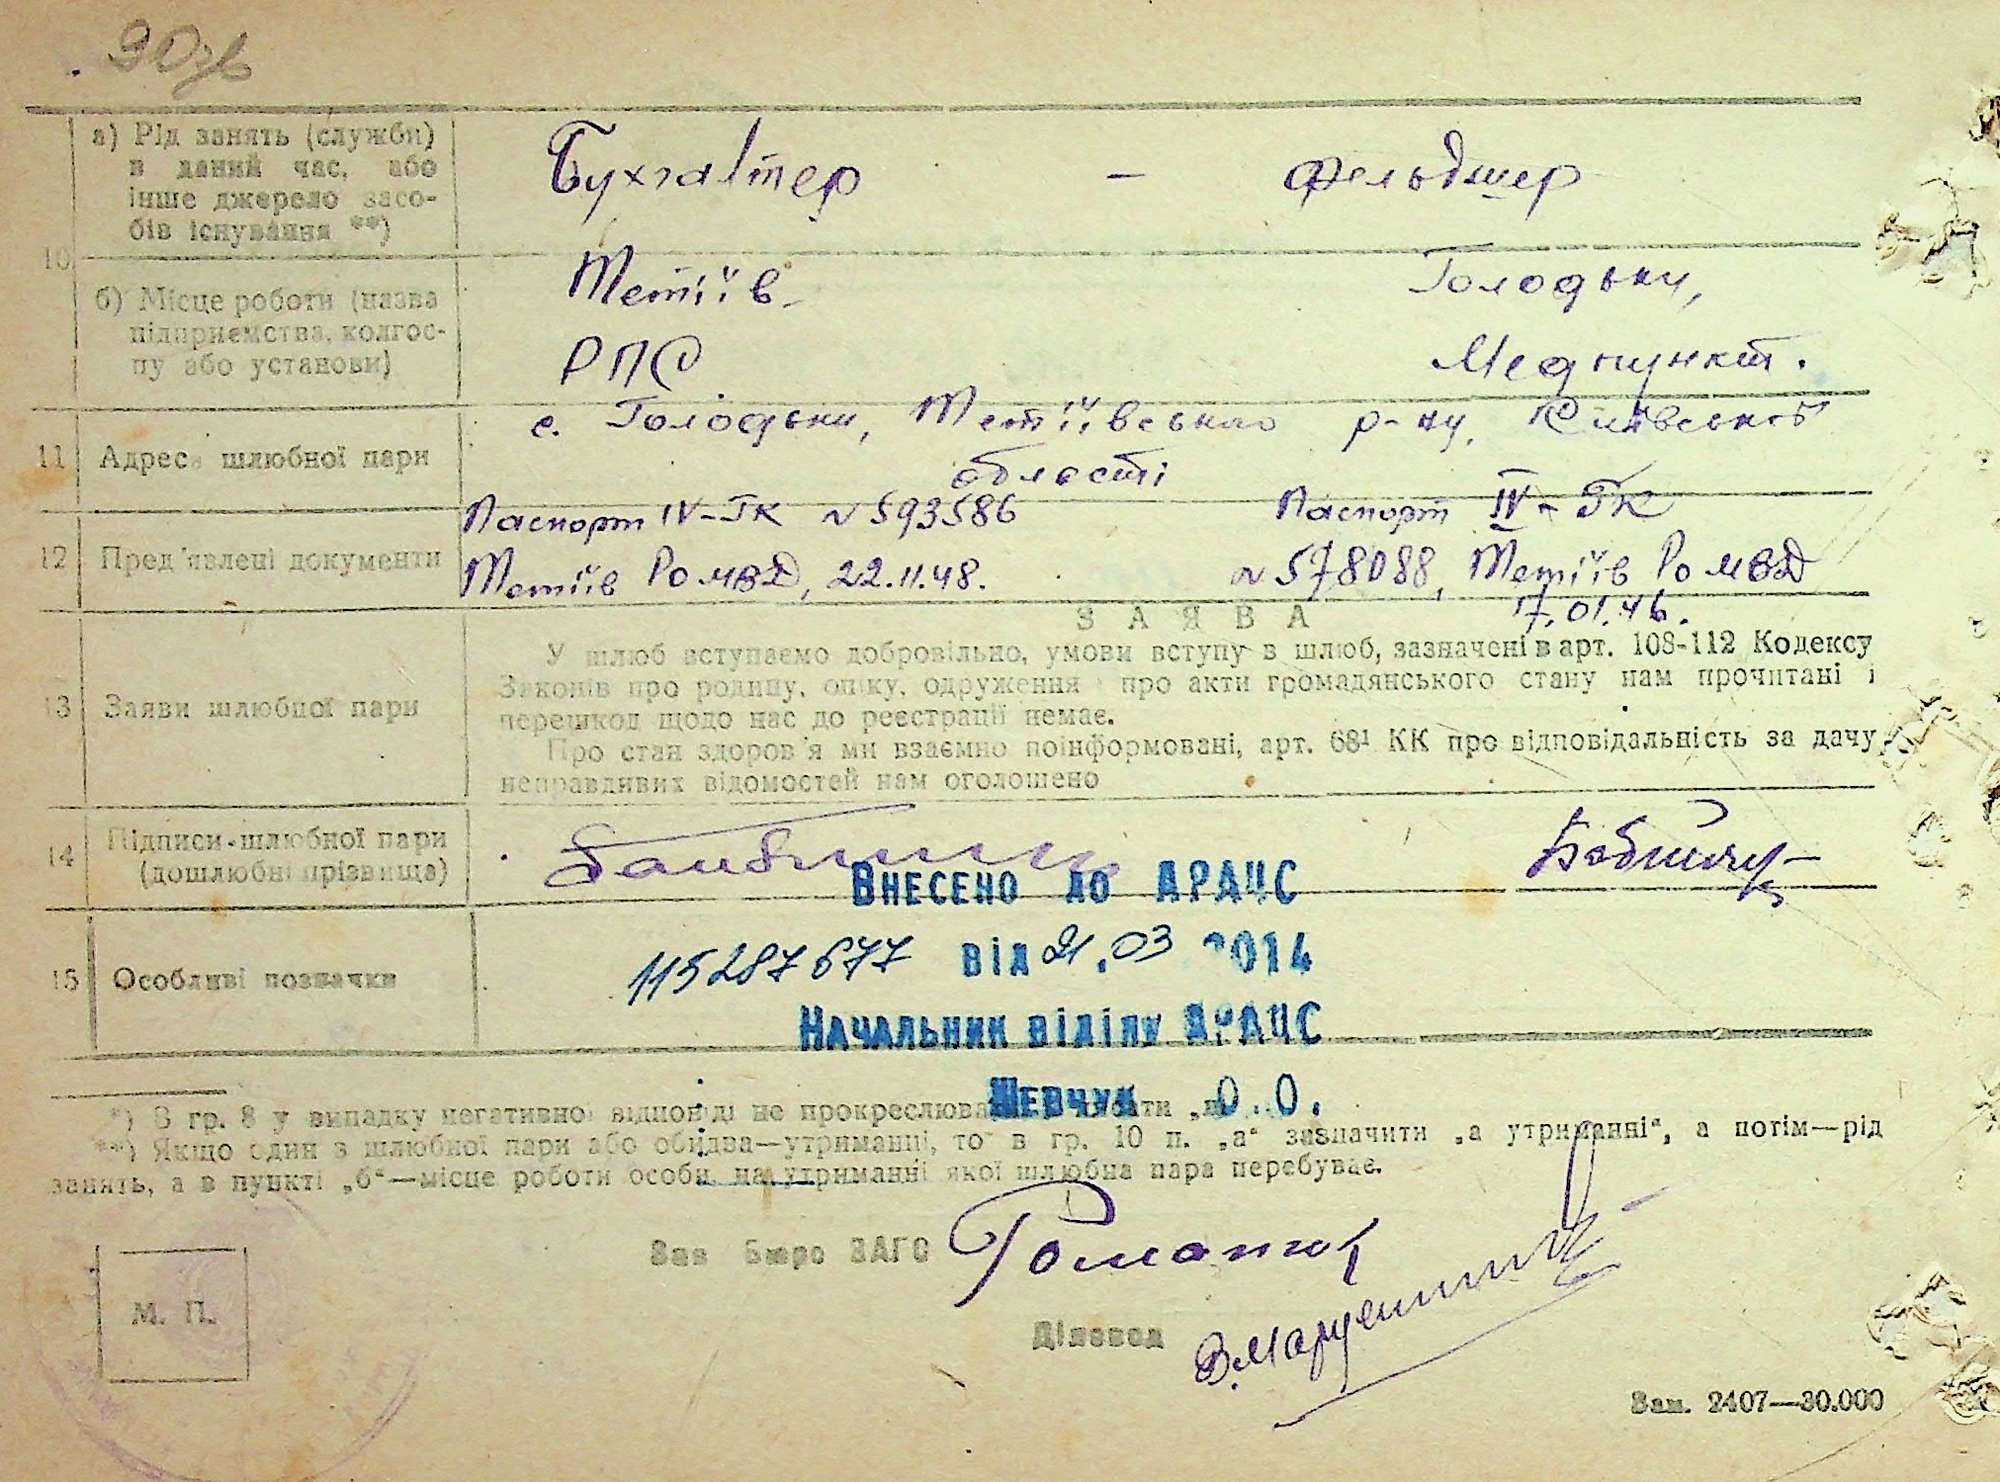 а) Рід занять (служби)
в даний час, або
інше джерело засо-
бів існування **)
Бухгалтер - фельдшер
10
б) Місце роботи (назва
підприємства, колгос-
пу або установи)
Тетіїв Голодьки,
РПС Медпункт.
11 Адреса шлюбної пари
с. Голодьки, Тетіївського р-ну, Київської
області
12 Пред'явлені документи
Паспорт IV-ГК № 593586 Паспорт IV-ГК
Тетіїв Ро МВД, 22.11.48. № 578088, Тетіїв Ро МВД
17.01.46.
ЗАЯВА
13 Заяви шлюбної пари
У шлюб вступаємо добровільно, умови вступу в шлюб, зазначені в арт. 108-112 Кодексу
Законів про родину, опіку, одруження і про акти громадянського стану нам прочитані і
перешкод щодо нас до реєстрації немає.
Про стан здоров'я ми взаємно поінформовані, арт. 68¹ КК про відповідальність за дачу
неправдивих відомостей нам оголошено
14 Підписи шлюбної пари
(дошлюбні прізвища)
Внесено до АРАЦС
15 Особливі позначки
115287677 від 21.03 2014
Начальник відділу АРАЦС
Шевчук О.О.
*) В гр. 8 у випадку негативної відповіді не прокреслювати
**) Якщо один з шлюбної пари або обидва—утриманці, то в гр. 10 п. „а“ зазначити „а утриманні“, а потім—рід
занять, а в пункті „б“—місце роботи особи, на утриманні якої шлюбна пара перебуває.
Зав Бюро ЗАГС Романюк
М. П.
Діловод
Зам. 2407—30.000